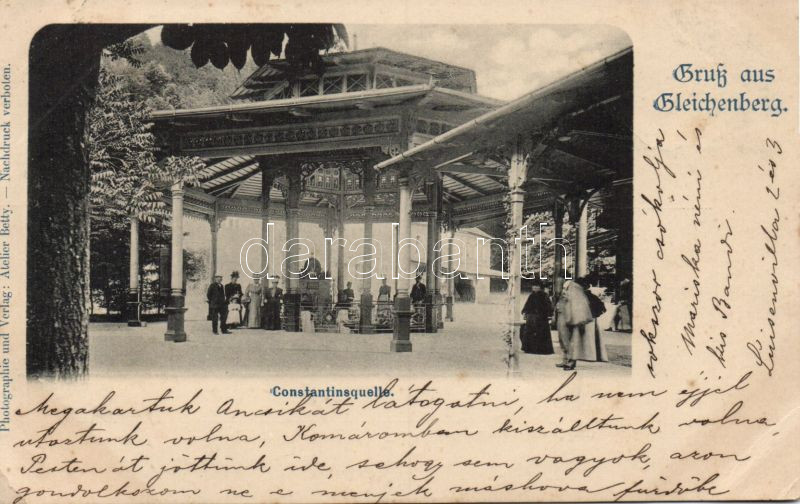 Photographie und Verlag: Atelier Betty. — Nachdruck verboten.
Gruß aus
Gleichenberg.
Constantinsquelle.
Megakartuk Ancsikát látogatni, ha nem éjjel
utaztunk volna, Komáromban kiszálltunk volna,
Pesten át jöttünk ide, sehogy sem vagyok, azon
gondolkozom ne e menjek máshova fürdőbe
sokszor csókolja
Mariska néni és
kis Bandi.
Luisenvilla 2 és 3
darabanth.com